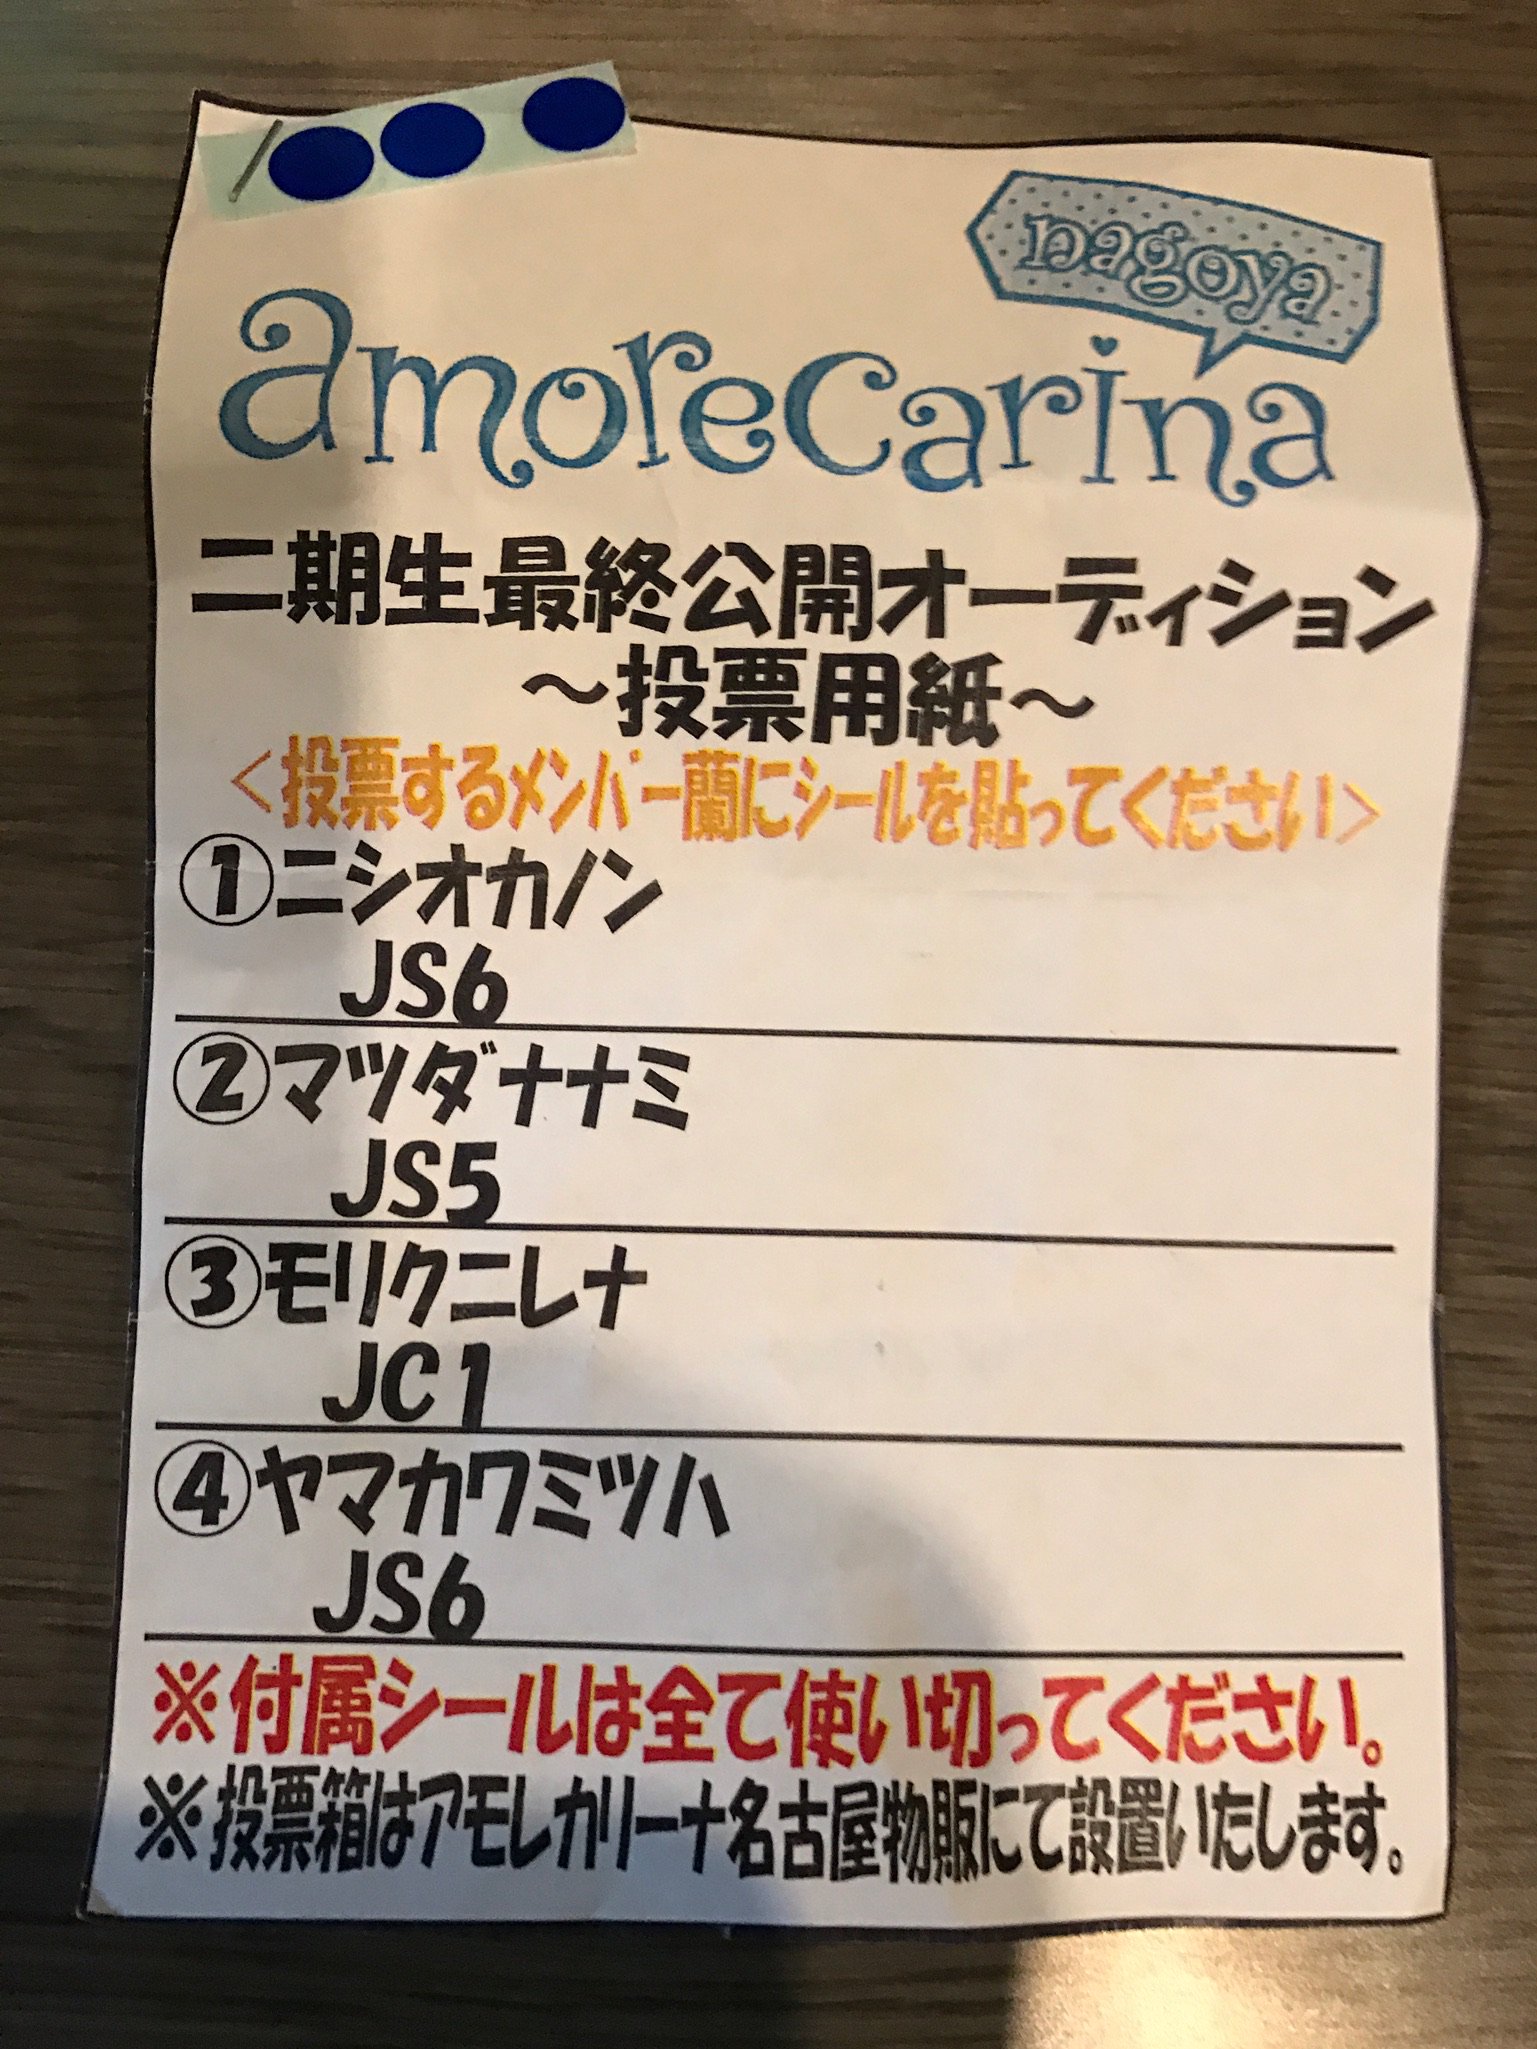 nagoya
amorecarina
二期生最終公開オーディション
～投票用紙～
＜投票するメンバー蘭にシールを貼ってください＞
①ニシオカノン
JS6
②マツダナナミ
JS5
③モリクニレナ
JC1
④ヤマカワミツハ
JS6
※付属シールは全て使い切ってください。
※投票箱はアモレカリーナ名古屋物販にて設置いたします。